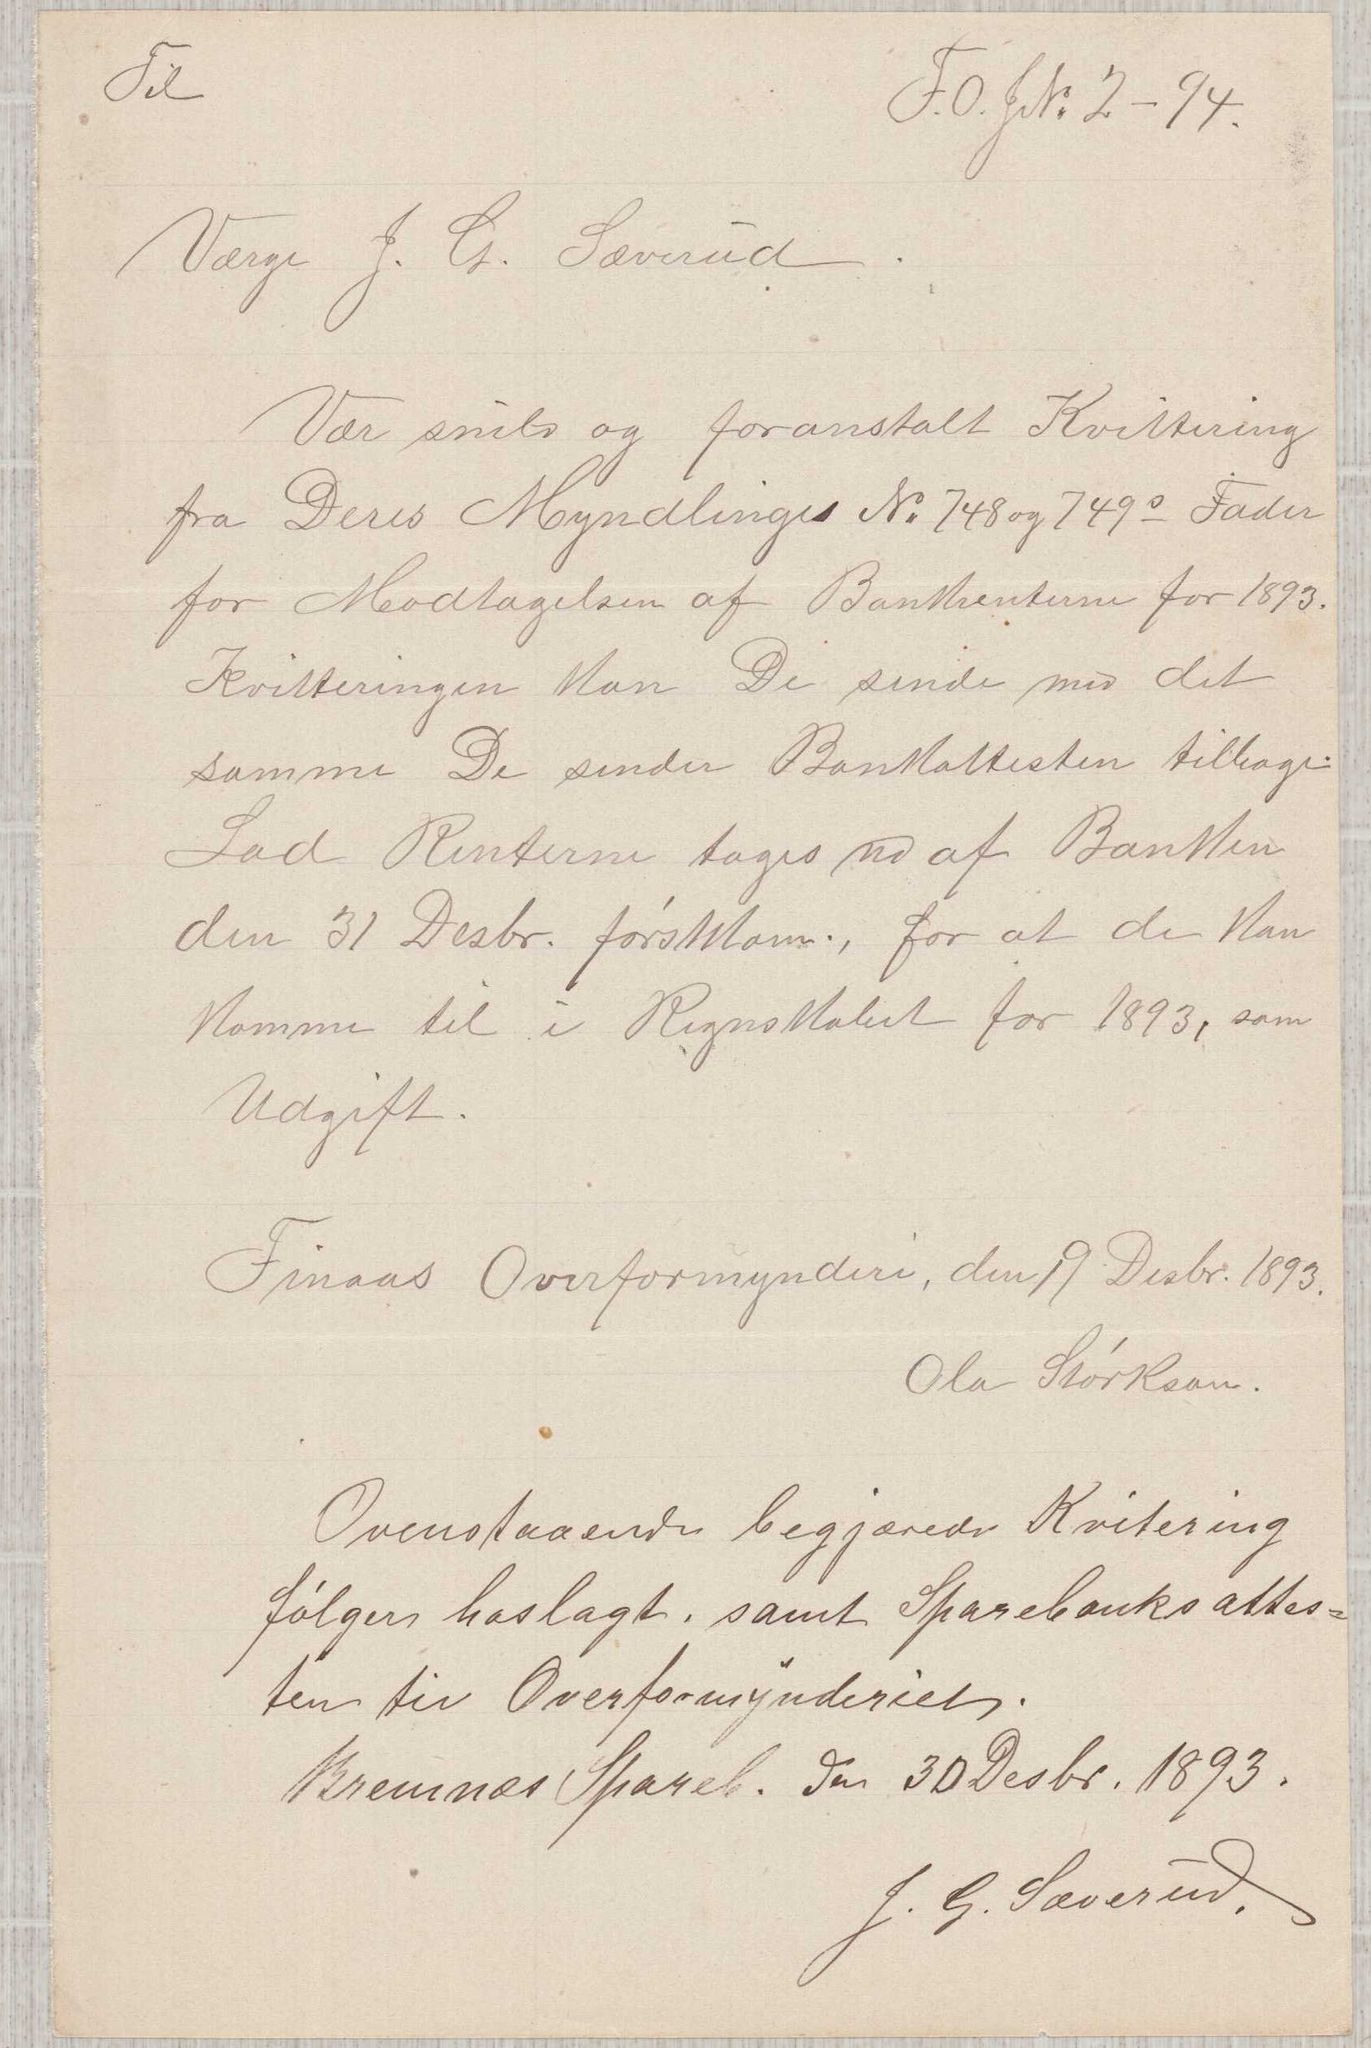 Til
F.O. J.No. 2 - 94.
Værge J. G. Sæverud.
Vær snild og foranstalt Kvittering
fra Deres Myndlinges No. 748 og 749s Fader
for Modtagelsen af Bankrenterne for 1893.
Kvitteringen kan De sende med det
samme De sender Bankattesten tilbage.
Lad Renterne tages ud af Banken
den 31 Desbr. førstkom., for at de kan
komme til i Regnskabet for 1893, som
Udgift.
Finaas Overformynderi, den 19 Desbr. 1893.
Ola Størkson.
Ovenstaaende begjærede Kvitering
følger hoslagt. samt Sparebanksattes=
ten til Overformynderiet.
Bremnæs Spareb. den 30 Desbr. 1893.
J. G. Sæverud.